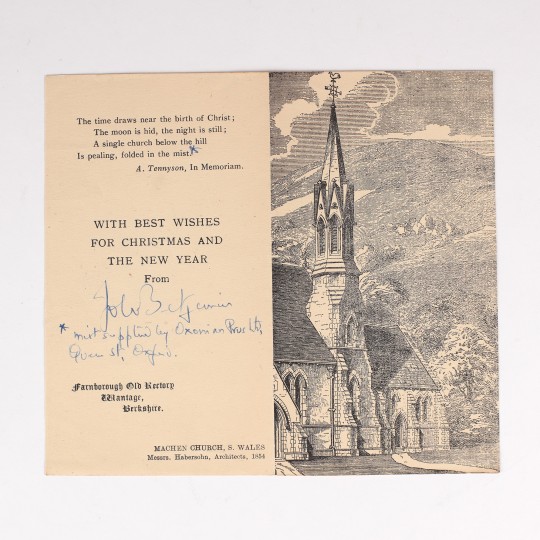 The time draws near the birth of Christ;
The moon is hid, the night is still;
A single church below the hill
Is pealing, folded in the mist.*
A. Tennyson, In Memoriam.
WITH BEST WISHES
FOR CHRISTMAS AND
THE NEW YEAR
From
John Betjeman
* mist supplied by Oxonian Press Ltd
Queen St, Oxford.
Farnborough Old Rectory
Wantage,
Berkshire.
MACHEN CHURCH, S. WALES
Messrs. Habersohn, Architects, 1854